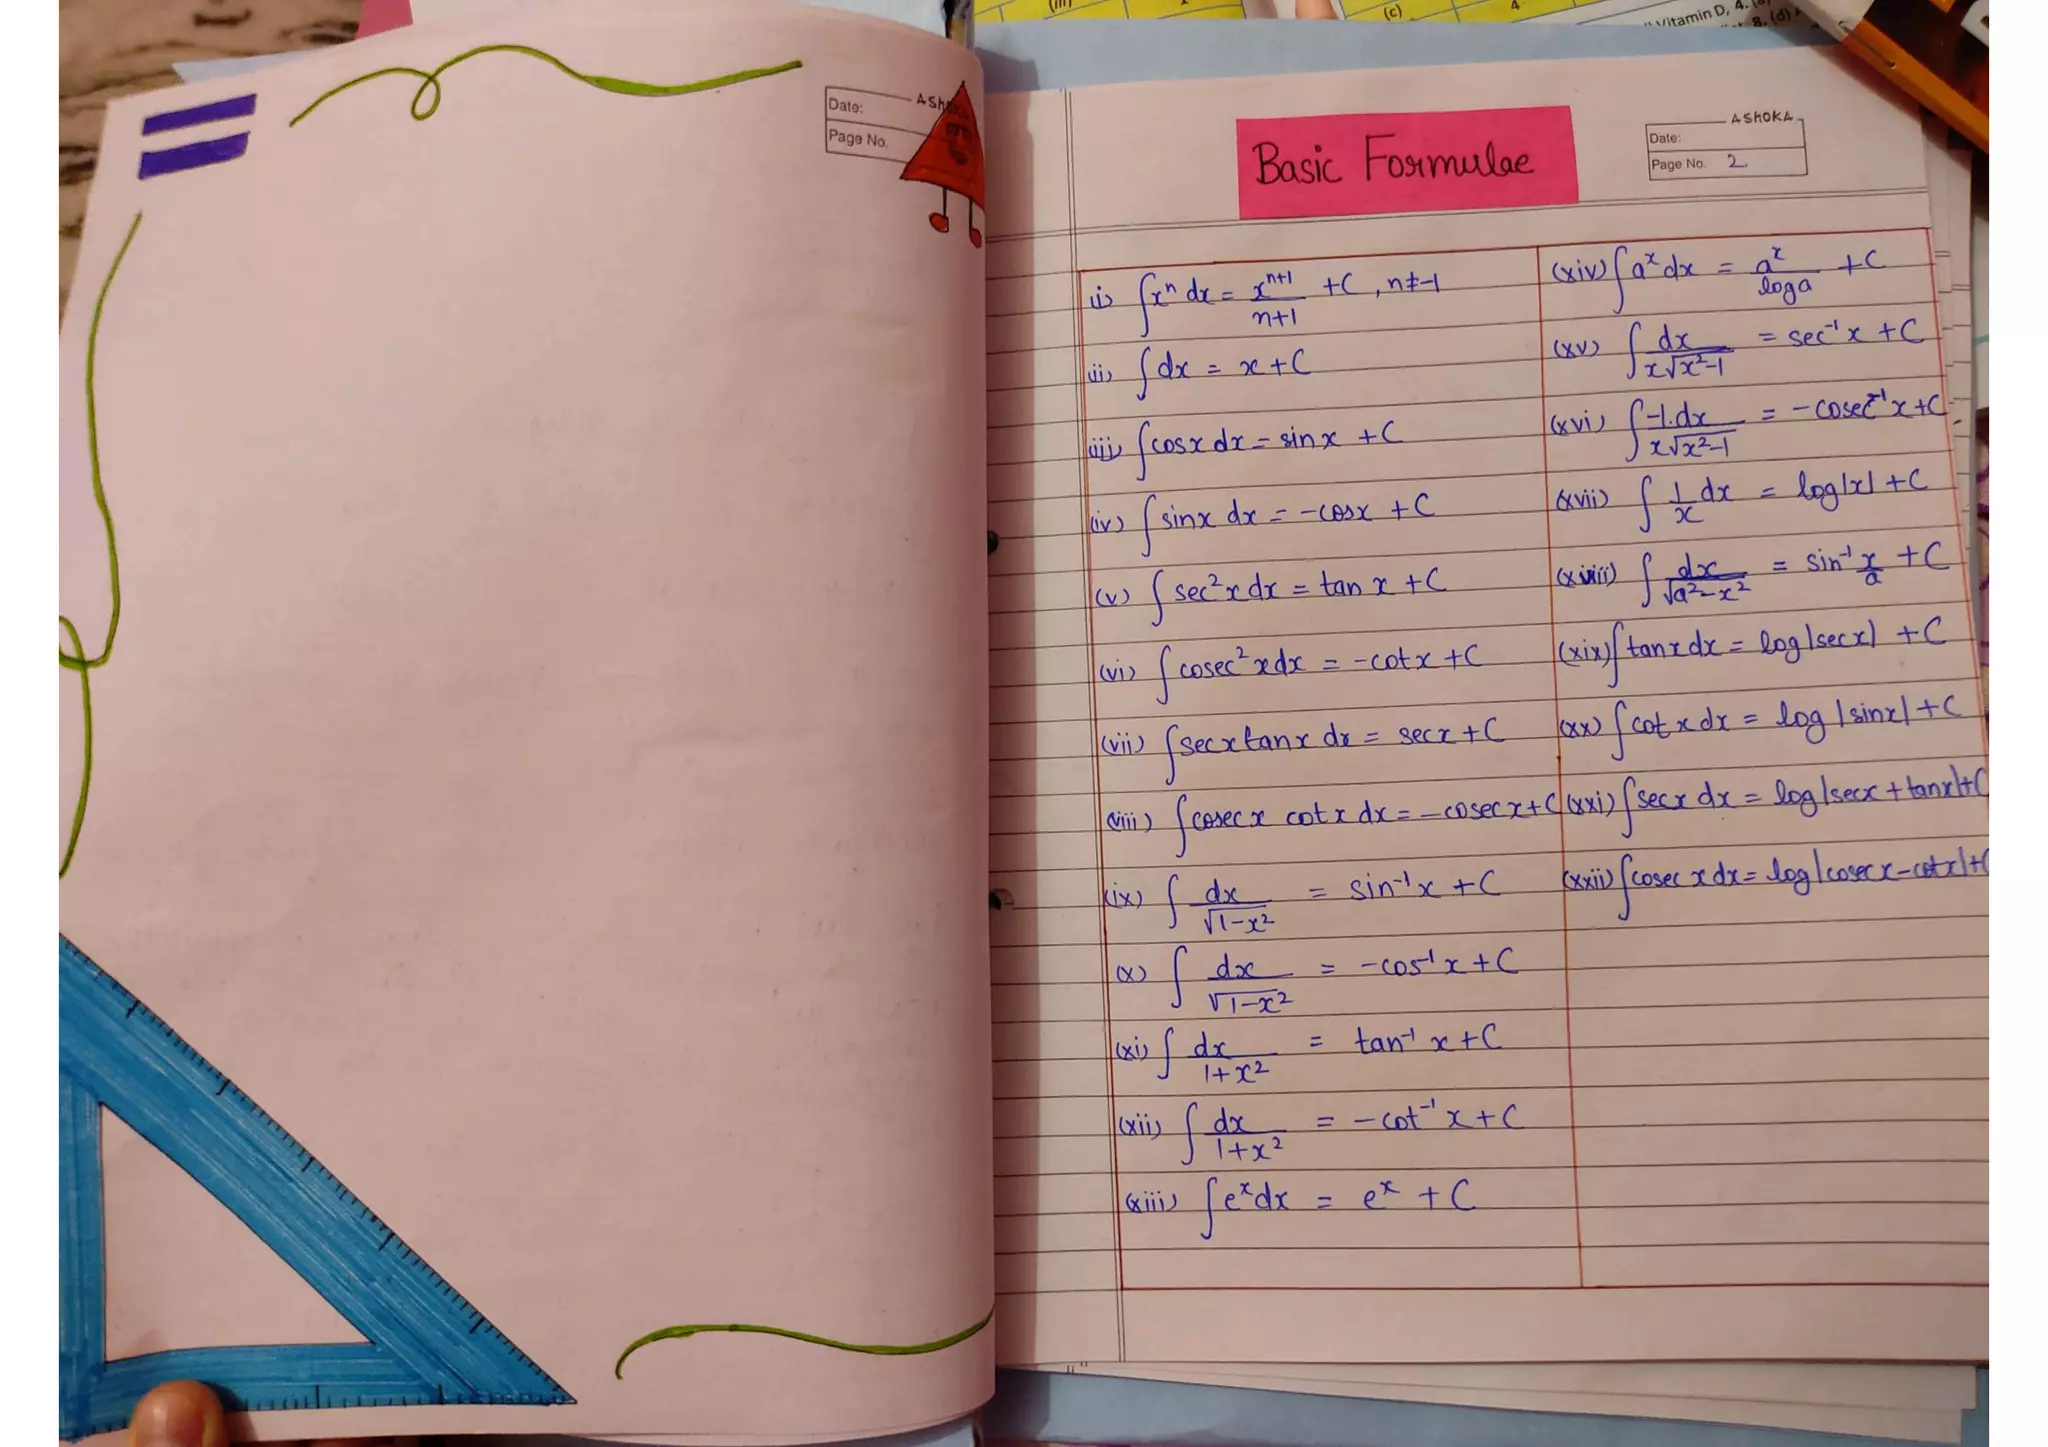 (iii)
(c)
4
Vitamin D, 4. (a)
8. (d)
Date:
Page No.
Basic Formulae
ASHOKA
Date:
Page No. 2.
(i) ∫xⁿ dx = xⁿ⁺¹/n+1 + C, n≠-1
(ii) ∫dx = x + C
(iii) ∫cosx dx = sinx + C
(iv) ∫sinx dx = -cosx + C
(v) ∫sec²x dx = tan x + C
(vi) ∫cosec²x dx = -cotx + C
(vii) ∫secx tanx dx = secx + C
(viii) ∫cosec x cot x dx = -cosec x + C
(ix) ∫dx/√1-x² = sin⁻¹x + C
(x) ∫dx/√1-x² = -cos⁻¹x + C
(xi) ∫dx/1+x² = tan⁻¹ x + C
(xii) ∫dx/1+x² = -cot⁻¹x + C
(xiii) ∫eˣdx = eˣ + C
(xiv) ∫aˣdx = aˣ/log a + C
(xv) ∫dx/x√x²-1 = sec⁻¹x + C
(xvi) ∫-1.dx/x√x²-1 = -cosec⁻¹x + C
(xvii) ∫1/x dx = log|x| + C
(xviii) ∫dx/√a²-x² = sin⁻¹ x/a + C
(xix) ∫tanx dx = log|secx| + C
(xx) ∫cot x dx = log |sinx| + C
(xxi) ∫secx dx = log|secx + tanx| + C
(xxii) ∫cosec x dx = log|cosec x - cotx| + C